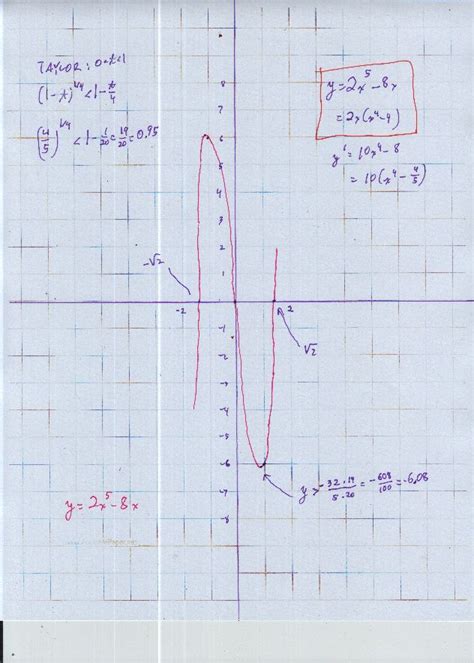 TAYLOR: 0<t<1
(1-t)^1/4 < 1-t/4
(4/5)^1/4 < 1-1/20 = 19/20 = 0.95
y=2x^5-8x
=2x(x^4-4)
y'=10x^4-8
=10(x^4-4/5)
8
7
6
5
4
3
2
1
-√2
-2
2
√2
-1
-2
-3
-4
-5
-6
-7
-8
y > -32·19/5·20 = -608/100 = -6.08
y=2x^5-8x